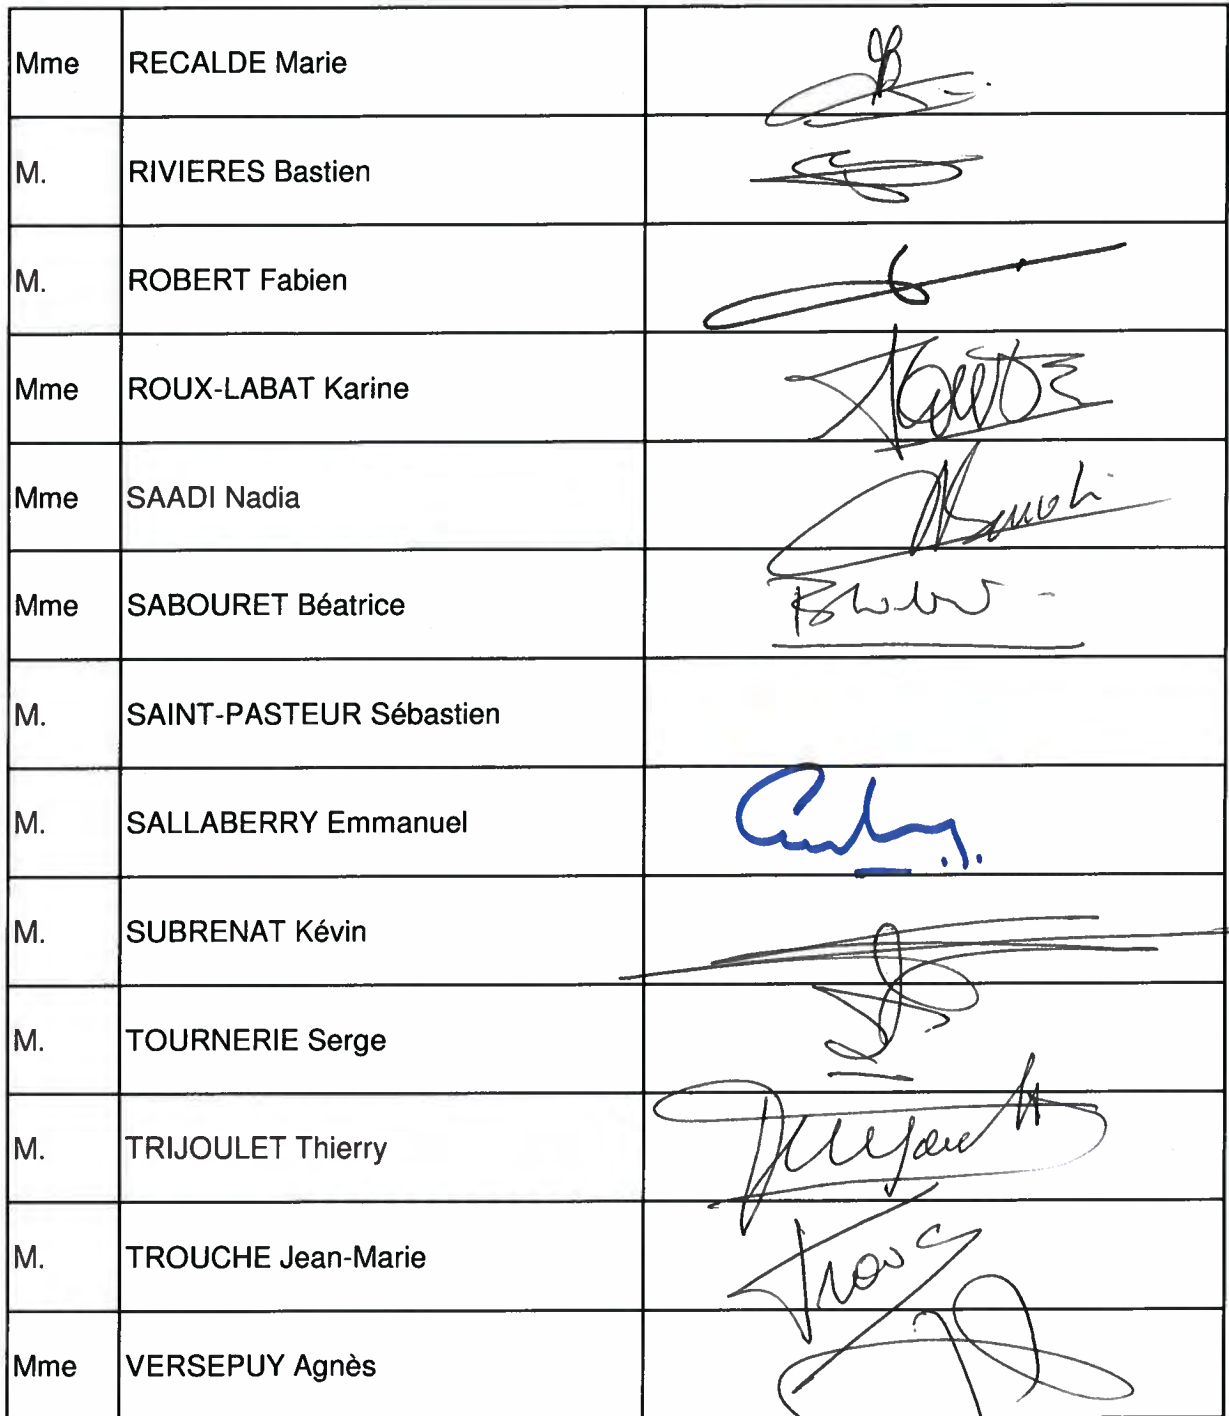 Mme RECALDE Marie
M. RIVIERES Bastien
M. ROBERT Fabien
Mme ROUX-LABAT Karine
Mme SAADI Nadia
Mme SABOURET Béatrice
M. SAINT-PASTEUR Sébastien
M. SALLABERRY Emmanuel
M. SUBRENAT Kévin
M. TOURNERIE Serge
M. TRIJOULET Thierry
M. TROUCHE Jean-Marie
Mme VERSEPUY Agnès